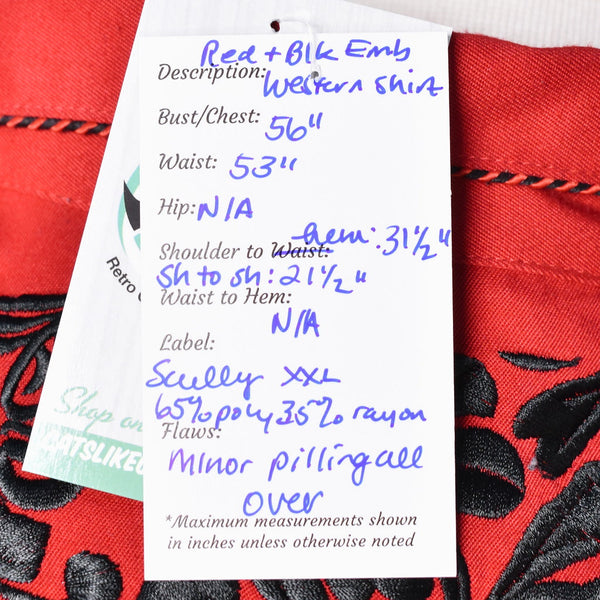 Red + Blk Emb
Description: Western shirt
Bust/Chest: 56"
Waist: 53"
Hip: N/A
Shoulder to Waist: hem: 31 1/2"
Sh to sh: 21 1/2"
Waist to Hem:
N/A
Label:
Scully XXL
65% poly 35% rayon
Flaws:
Minor pilling all
over
*Maximum measurements shown
in inches unless otherwise noted
Retro
Shop on
CATSLIKE